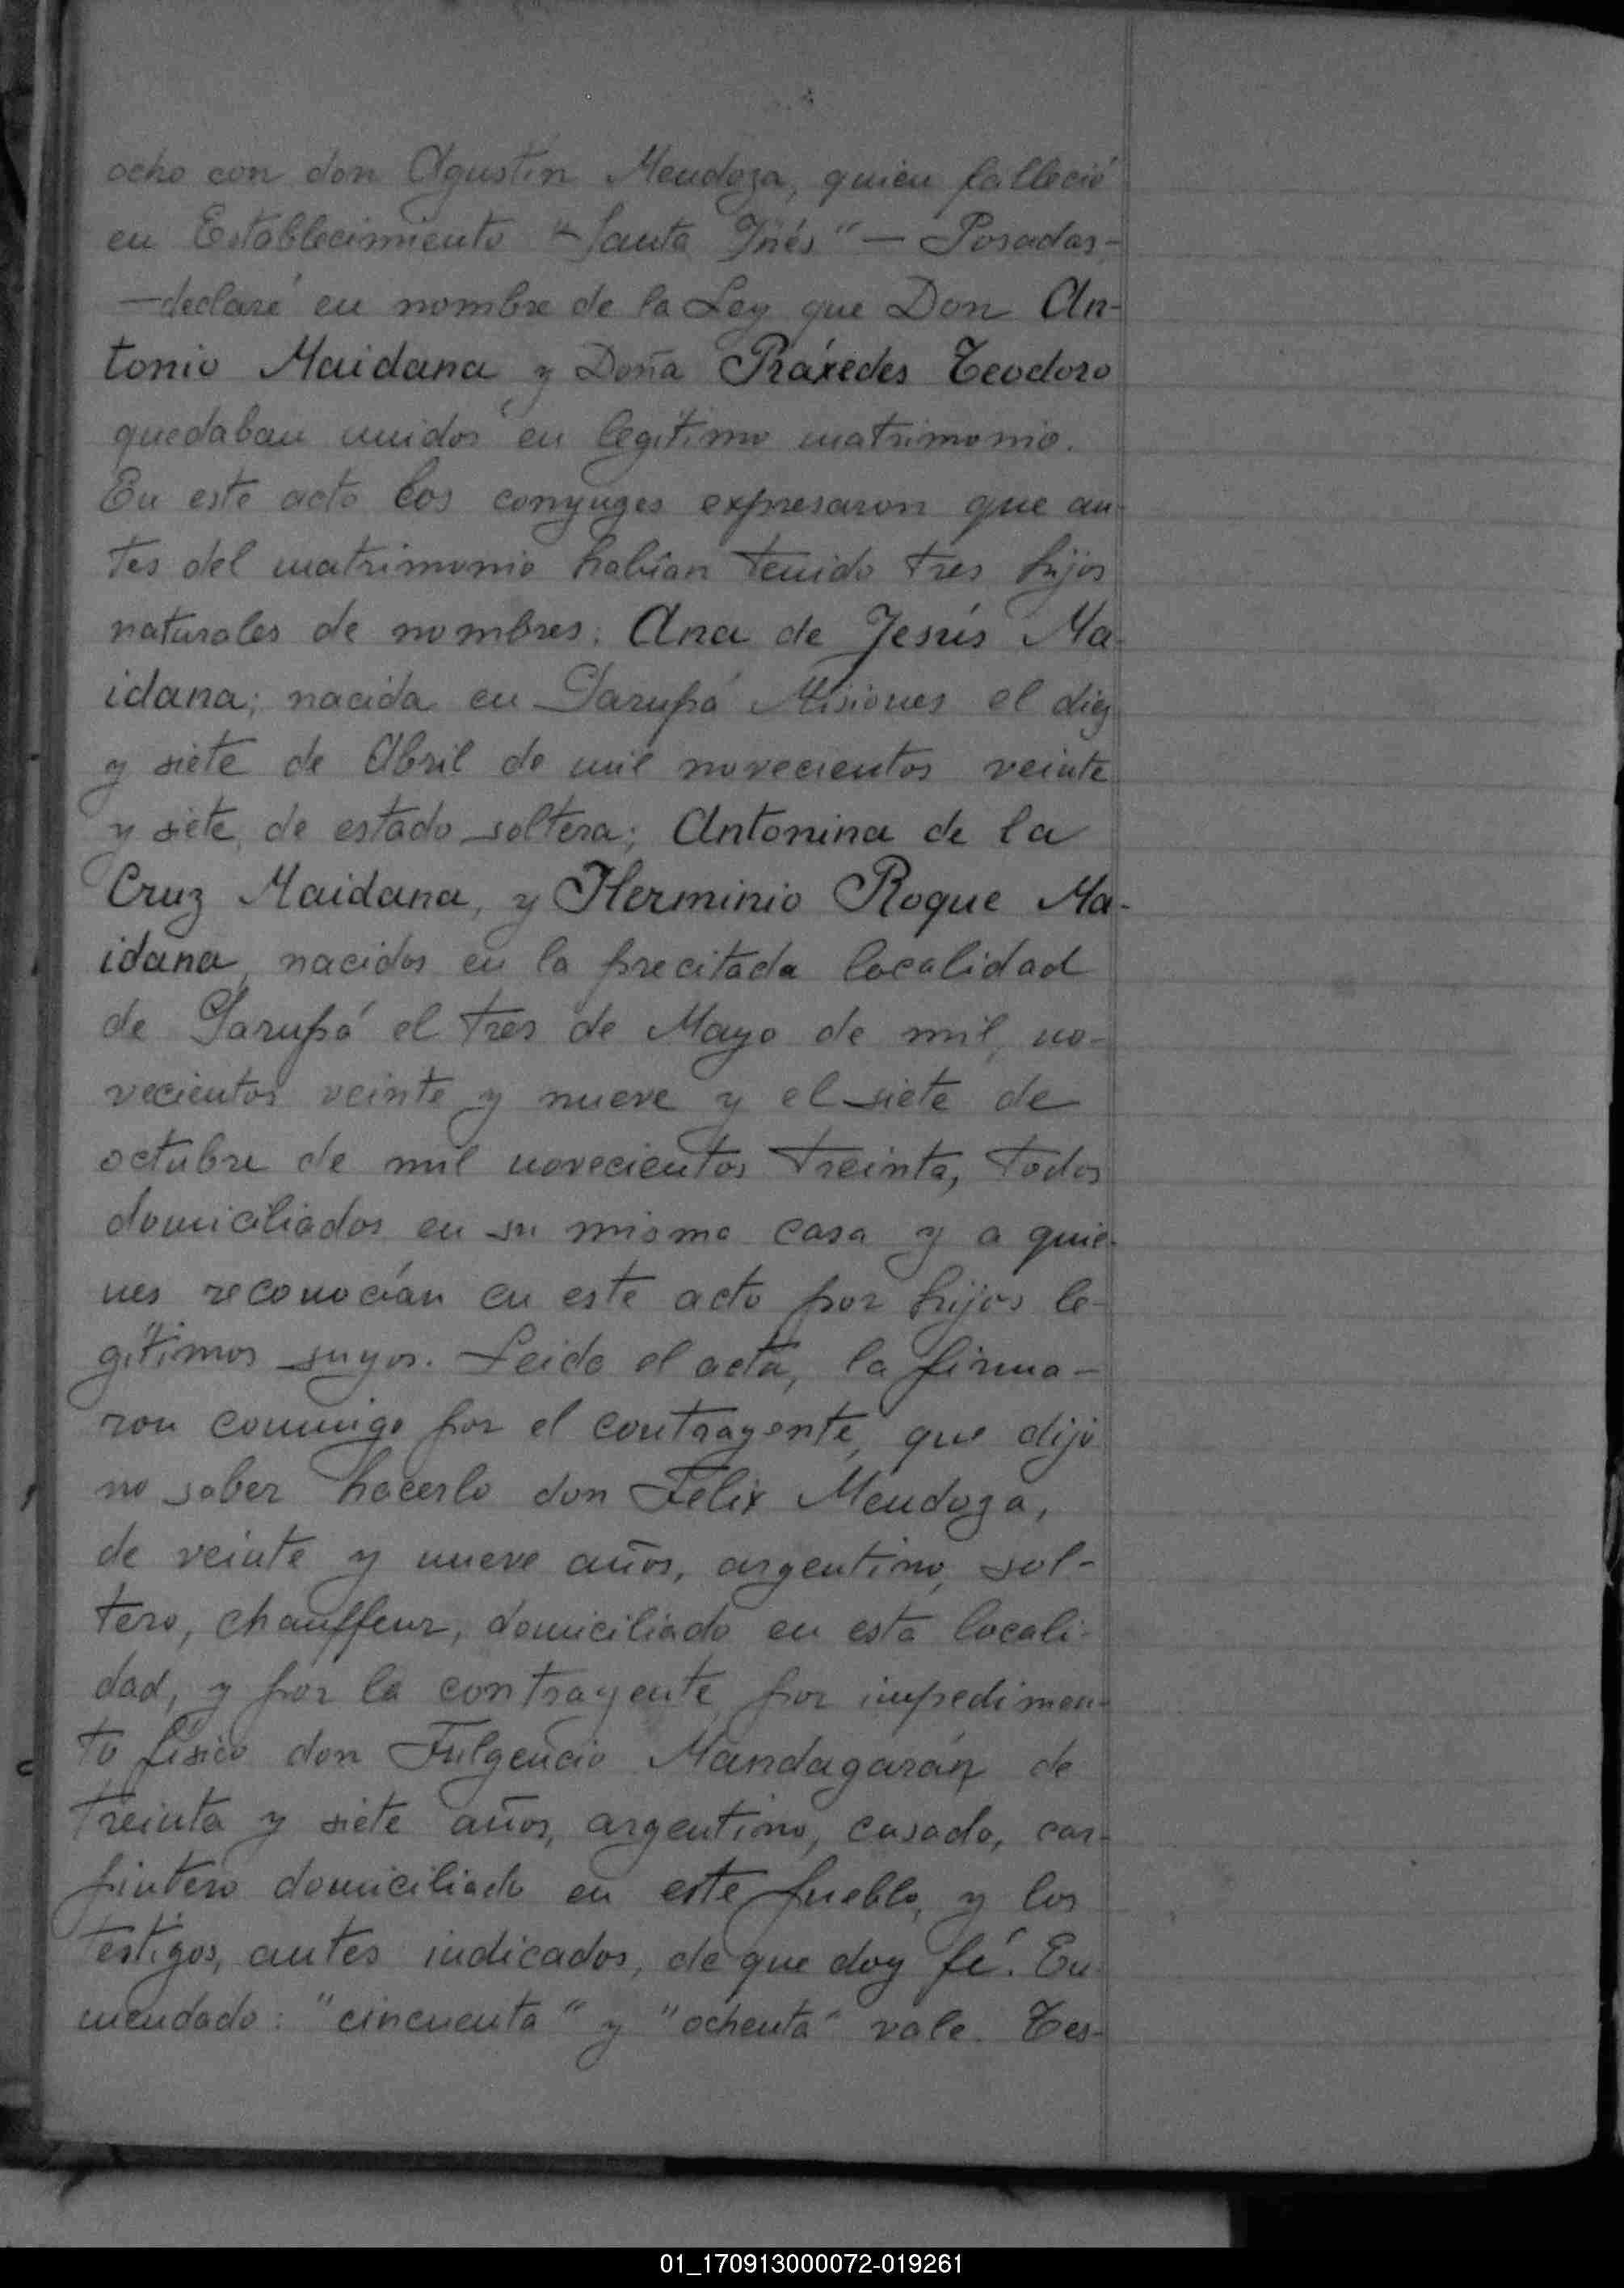 ocho con don Agustin Mendoza, quien falleció
en Establecimiento "Santa Inés" — Posadas-
—declaré en nombre de la Ley que Don An-
tonio Maidana y Doña Práxedes Teodoro
quedaban unidos en legítimo matrimonio.
En este acto los conyuges expresaron que an-
tes del matrimonio habían tenido tres hijos
naturales de nombres: Ana de Jesús Ma-
idana; nacida en Garupá Misiones el diez
y siete de Abril de mil novecientos veinte
y siete, de estado soltera; Antonina de la
Cruz Maidana, y Herminio Roque Ma-
idana, nacidos en la precitada localidad
de Garupá el tres de Mayo de mil, no-
vecientos veinte y nueve y el siete de
octubre de mil novecientos treinta, todos
domiciliados en su misma casa y a quie-
nes reconocían en este acto por hijos le-
gítimos suyos. Leida el acta, la firma-
ron conmigo por el contrayente, que dijo
no saber hacerlo don Felix Mendoza,
de veinte y nueve años, argentino, sol-
tero, chauffeur, domiciliado en esta locali-
dad, y por la contrayente, por impedimen-
to físico don Fulgencio Mandagarán de
treinta y siete años, argentino, casado, car-
pintero domiciliado en este pueblo, y los
testigos, antes indicados, de que doy fé. En-
mendado: "cincuenta" y "ochenta" vale. Tes-
01_170913000072-019261